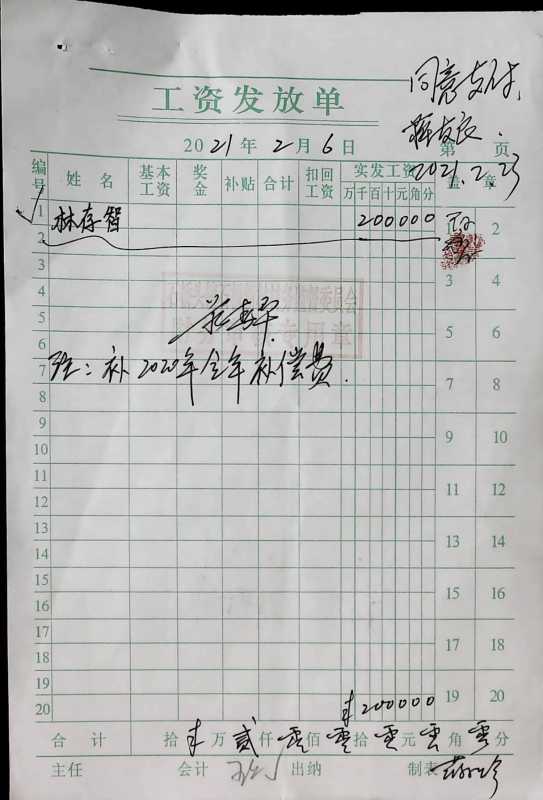 同意支付.
工资发放单
2021年2月6日
第 页
2021.2.23
编号 姓名 基本工资 奖金 补贴 合计 扣回工资 实发工资 盖章
万千百十元角分
1 林存智 200000 1 2
2
3 3 4
4
5 5 6
6
7 注：补2020年全年补偿费. 7 8
8
9 9 10
10
11 11 12
12
13 13 14
14
15 15 16
16
17 17 18
18
19 19 20
20 ¥200000
合计 拾 ¥ 万 贰 仟 零 佰 零 拾 零 元 零 角 零 分
主任 会计 出纳 制表